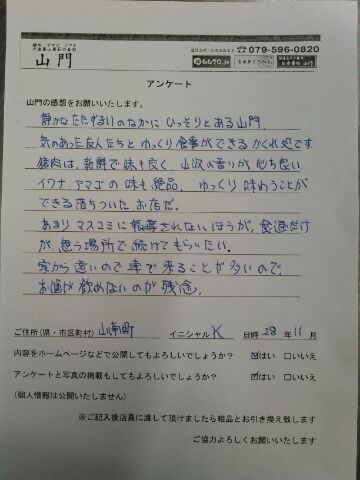 山門
079-596-0820
6690.jp
アンケート
山門の感想をお願いいたします。
静かなたたずまいのなかにひっそりとある山門。
気のあった友人たちとゆっくり食事ができるかくれ処です。
猪肉は、新鮮で味も良く、山椒の香りが心ち良い。
イワナ、アマゴの味も絶品。ゆっくり味わうことが
できる落ちついたお店だ。
あまりマスコミに報毒されないほうが、食通だけ
が、思う場所で続けてもらいたい。
家から遠いので車で来ることが多いので、
お酒が飲めないのが残念。
ご住所(県・市区町村) 山南町 イニシャル K 日時 28 年 11 月
内容をホームページなどで公開してもよろしいでしょうか? ☑はい □いいえ
アンケートと写真の掲載もしてもよろしいでしょうか? ☑はい □いいえ
(個人情報は公開いたしません)
※ご記入後店員に渡して頂けましたら粗品とお引き換え致します
ご協力よろしくお願いいたします